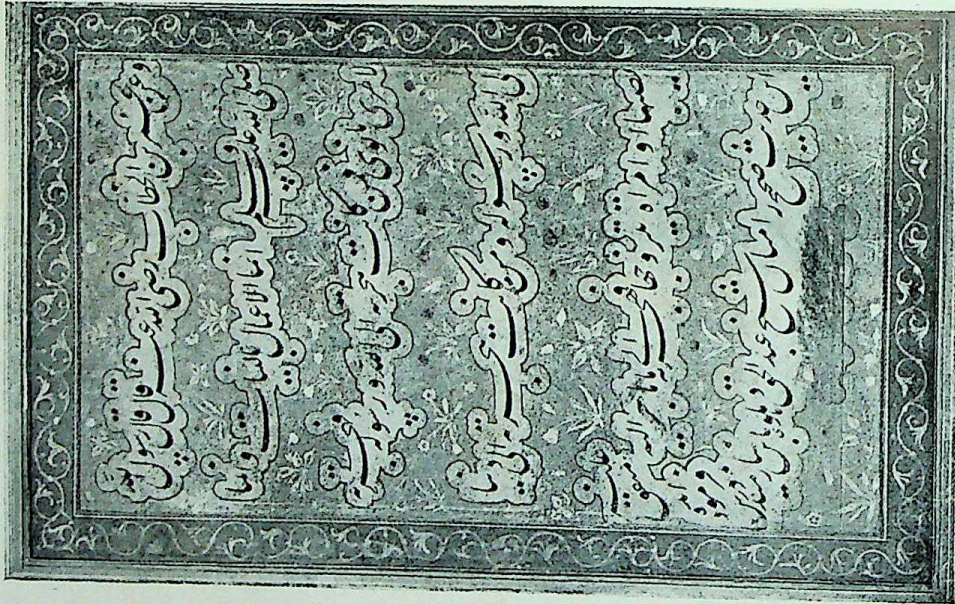 وعن عمر بن الخطاب رضى الله عنه قال قال رسول الله
صلى الله عليه وسلم انما الاعمال بالنيات وانما
لامرئ ما نوى فمن كانت هجرته الى الله ورسوله فهجرته
الى الله ورسوله ومن كانت هجرته الى دنيا
يصيبها او امراة يتزوجها فهجرته الى ما هاجر اليه متفق عليه
این حدیث صحیح را شیخ عبدالحی